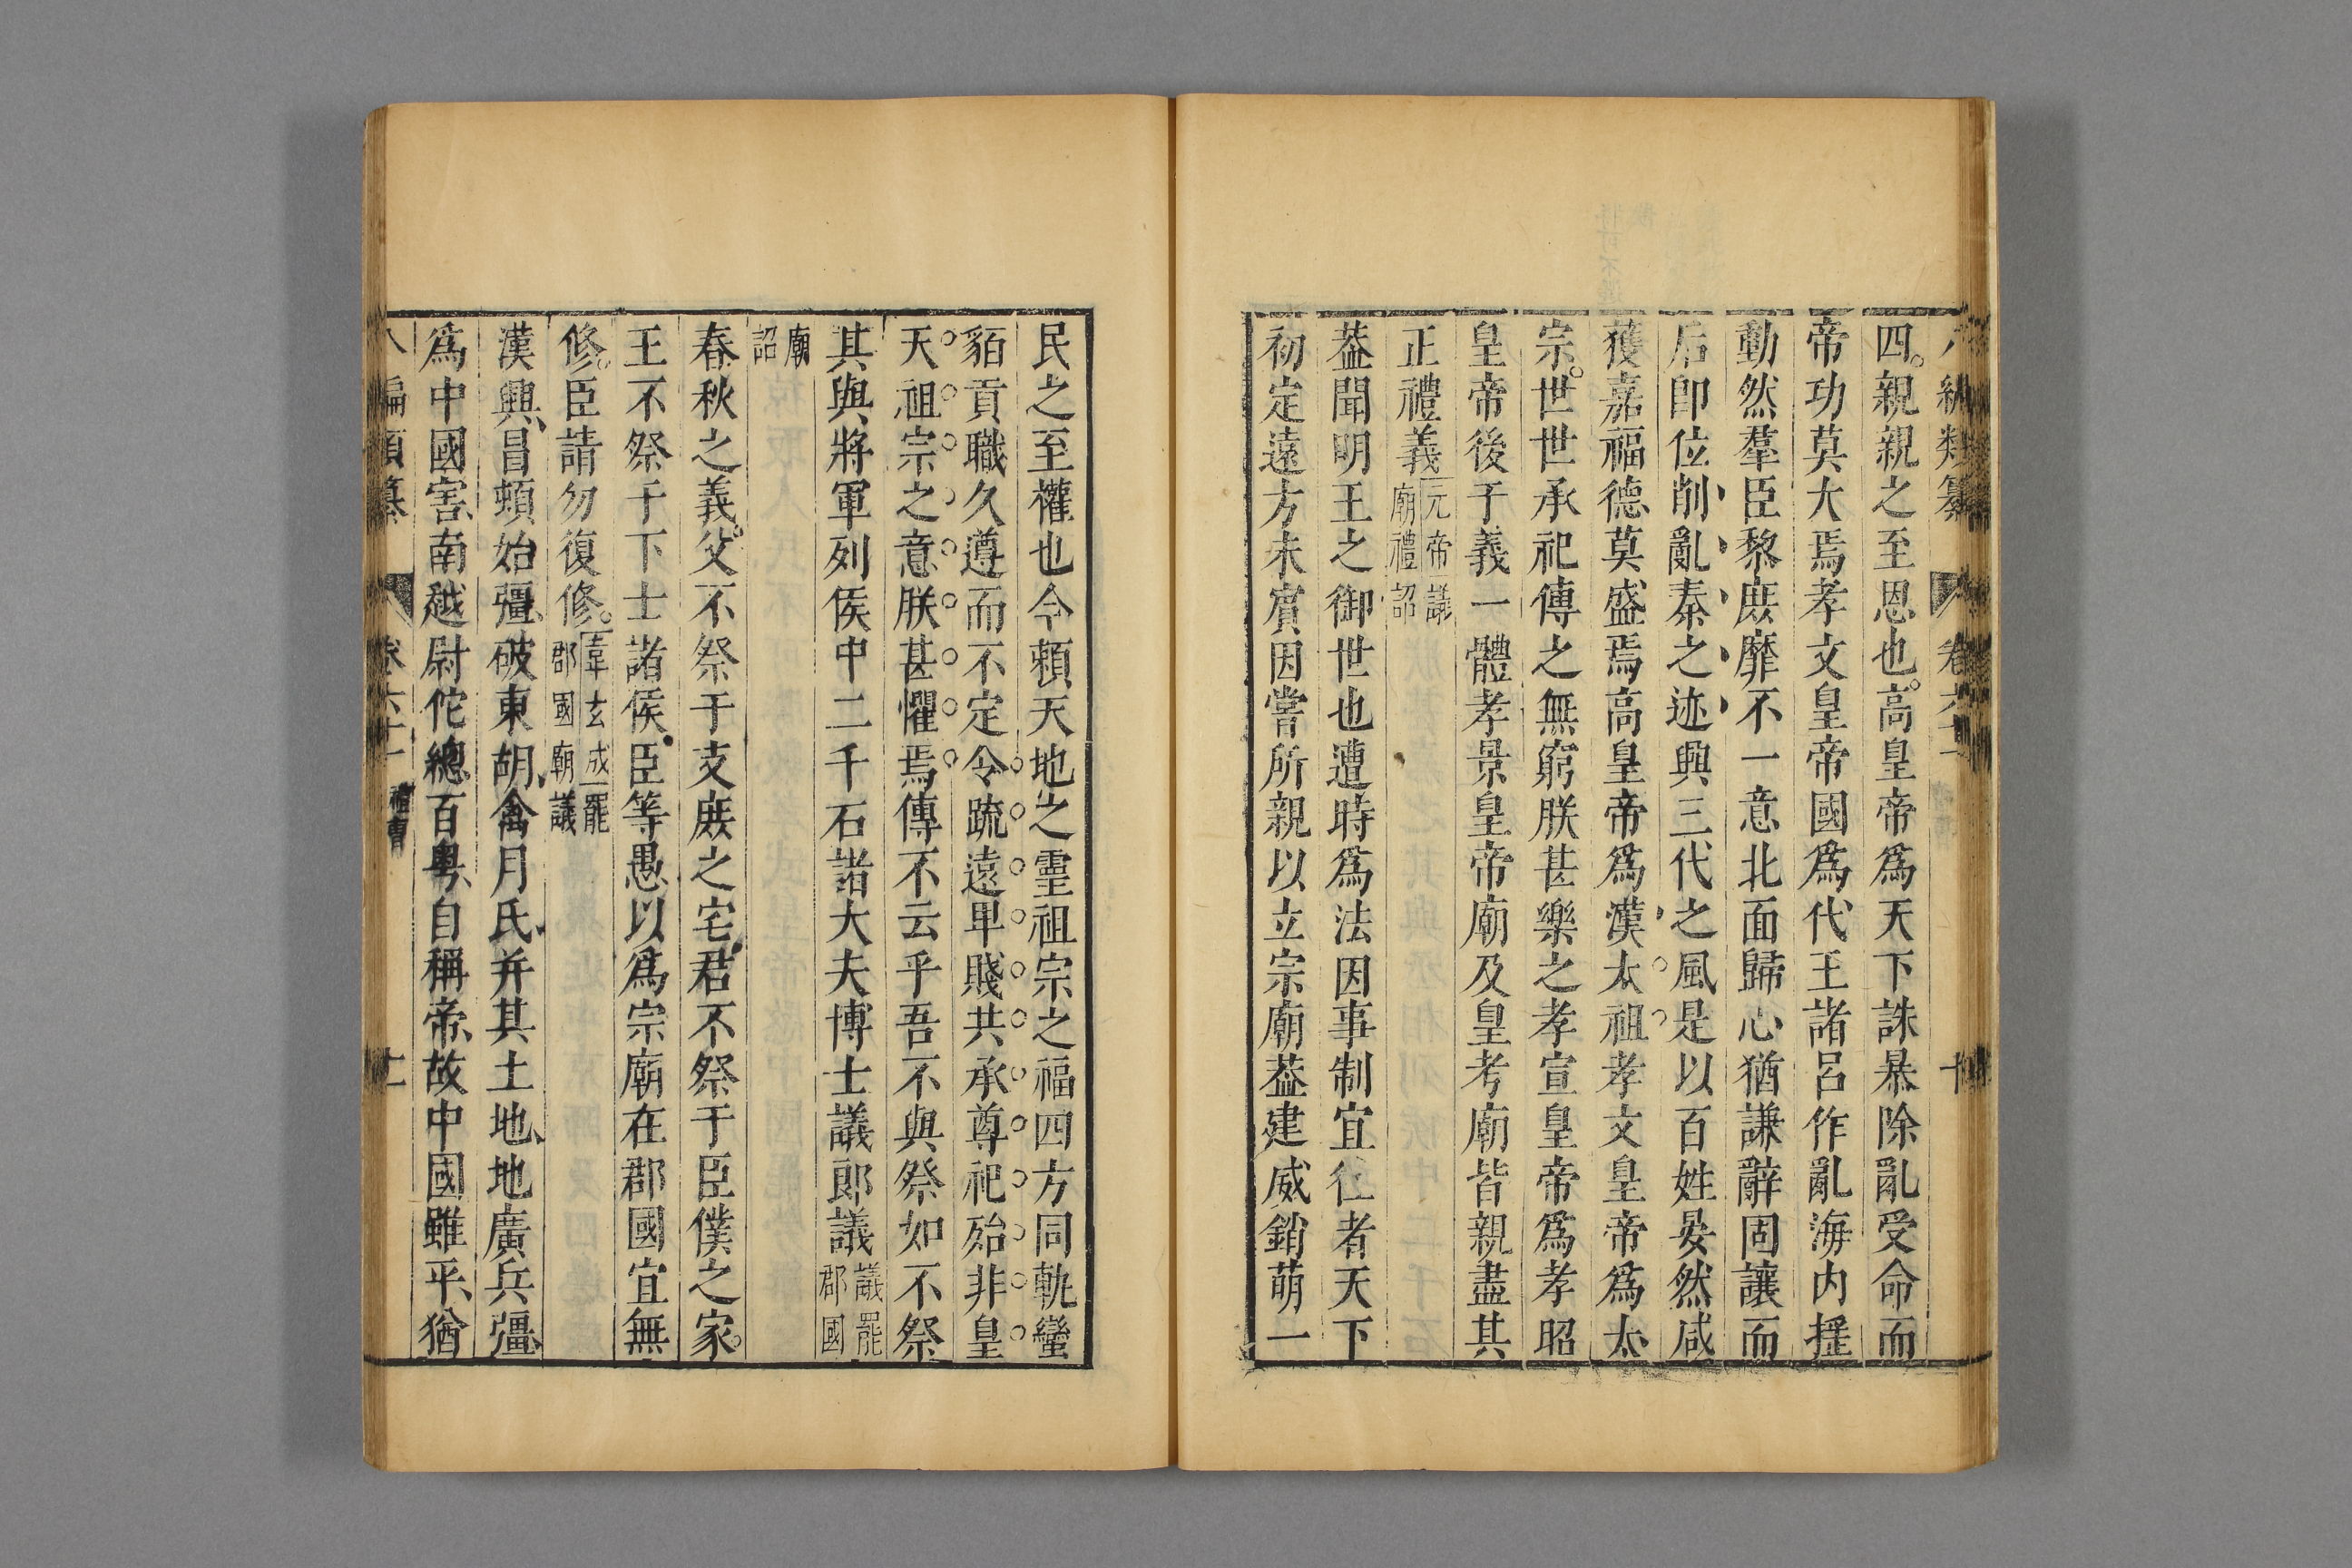 編類纂 卷六十一 十
四親親之至恩也高皇帝爲天下誅暴除亂受命而
帝功莫大焉孝文皇帝國爲代王諸呂作亂海内摇
動然羣臣黎庶靡不一意北面歸心猶謙辭固讓而
后卽位削亂秦之迹興三代之風是以百姓晏然咸
獲嘉福德莫盛焉高皇帝爲漢太祖孝文皇帝爲太
宗世世承祀傳之無窮朕甚樂之孝宣皇帝爲孝昭
皇帝後于義一體孝景皇帝廟及皇考廟皆親盡其
正禮義元帝議廟禮詔
葢聞明王之御世也遭時爲法因事制宜往者天下
初定遠方未賓因嘗所親以立宗廟葢建威銷萌一
民之至權也今賴天地之靈祖宗之福四方同軌蠻
貊貢職久遵而不定令疏遠卑賤共承尊祀殆非皇
天祖宗之意朕甚懼焉傳不云乎吾不與祭如不祭
其與將軍列侯中二千石諸大夫博士議郎議議罷郡國
廟詔
春秋之義父不祭于支庶之宅君不祭于臣僕之家
王不祭于下士諸侯臣等愚以爲宗廟在郡國宜無
修臣請勿復修韋玄成罷郡國廟議
漢興冒頓始彊破東胡禽月氏并其土地地廣兵彊
爲中國害南越尉佗總百粤自稱帝故中國雖平猶
八編類纂 卷六十一 禮曹 十一